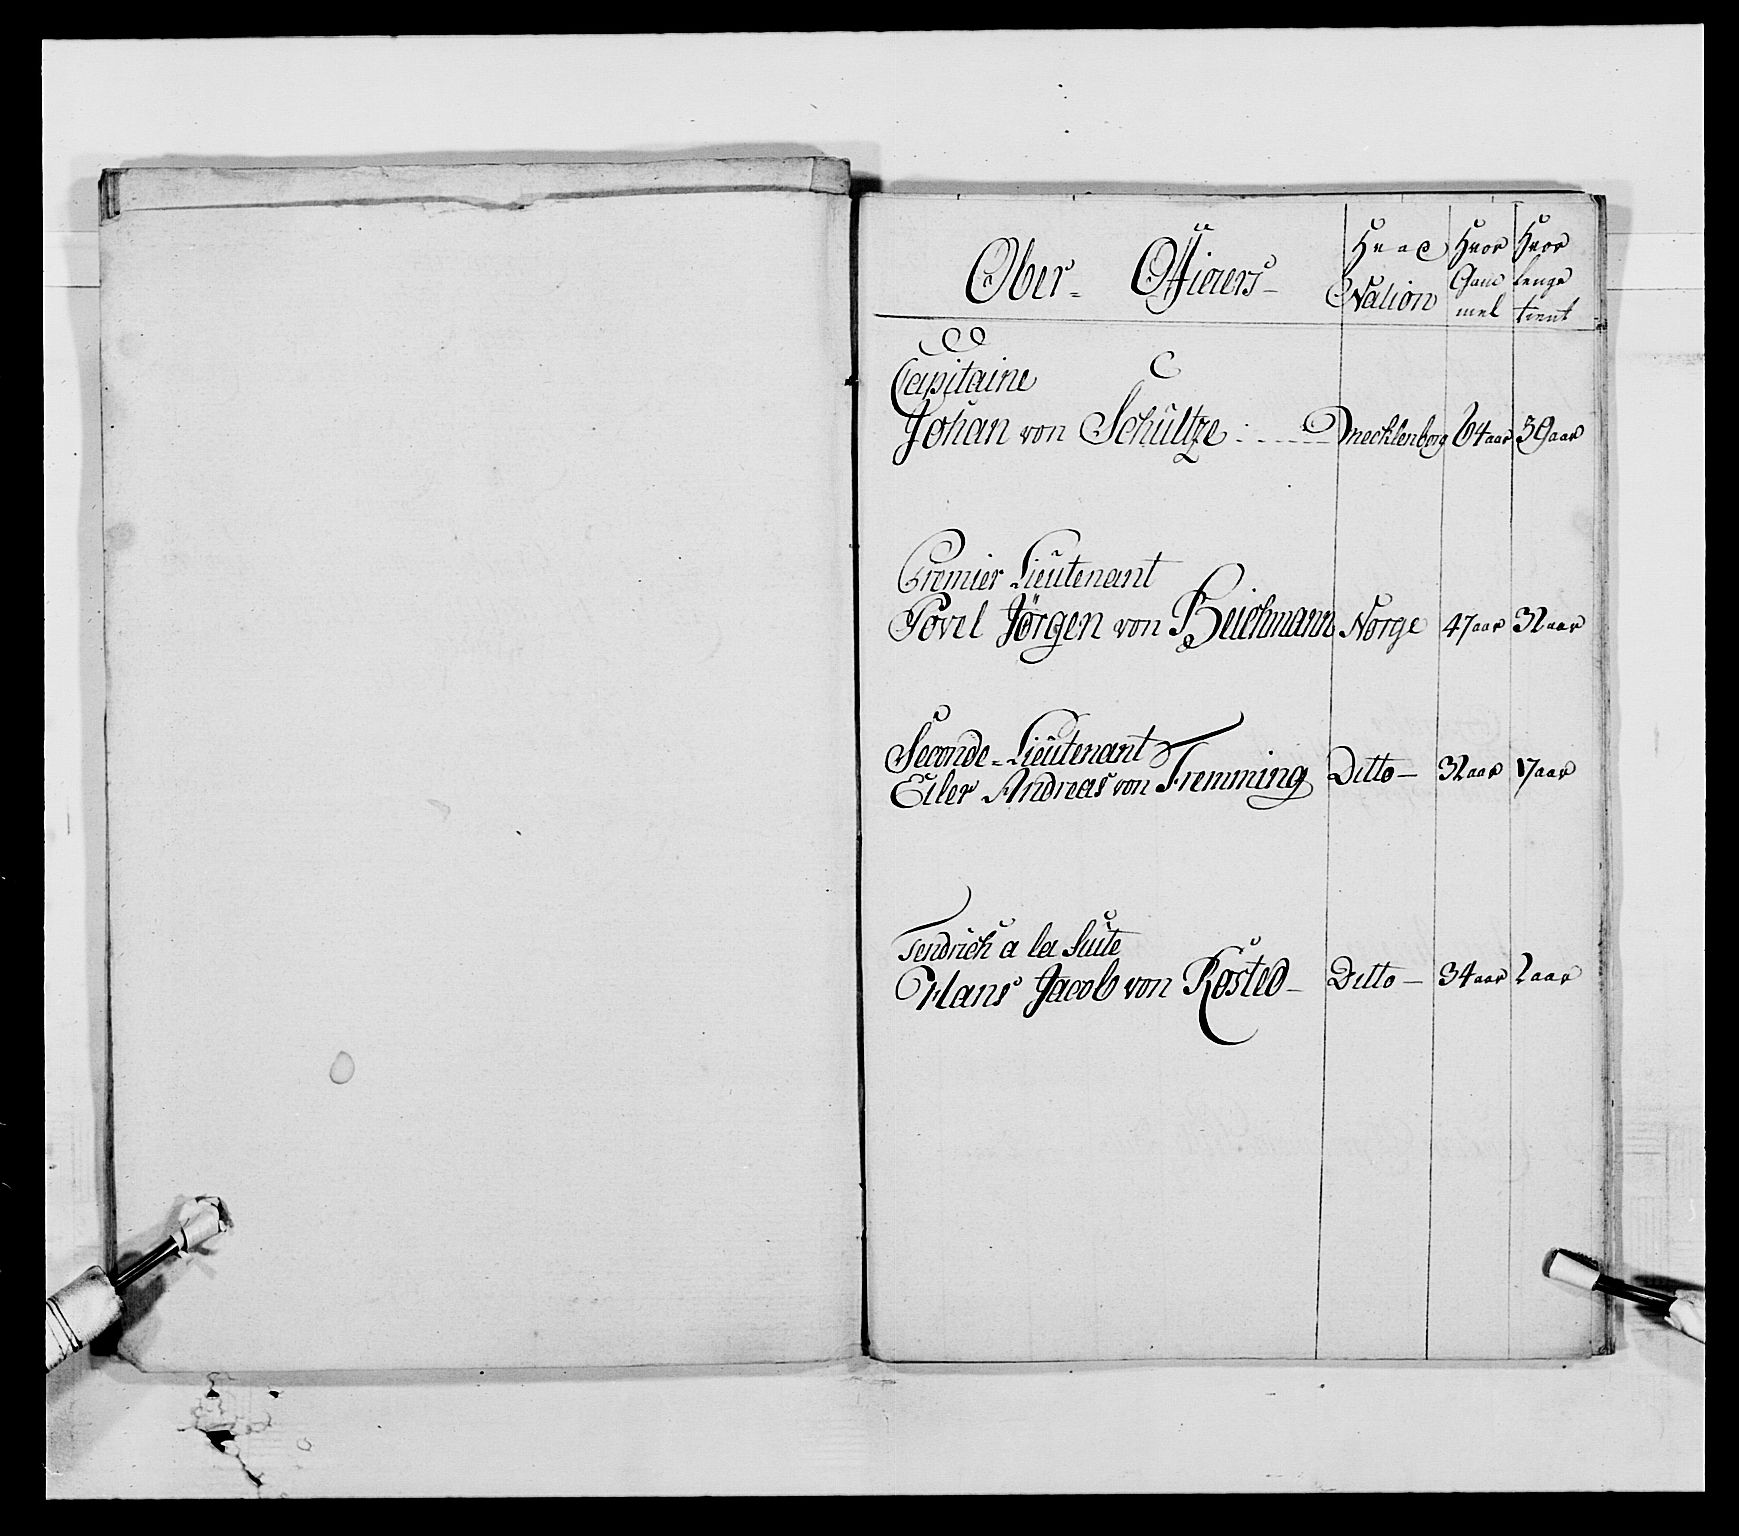 Ober- Officiers-
Hvad Nation
Hvor Gam mel
Hvor lenge tient
Capitaine
Johan von Schültze Mecklenborg 64 aar 39 aar
Premier Lieutenant
Povel Jörgen von Beichmann Norge 47 aar 32 aar
Seconde-Lieutenant
Eiler Andreas von Fremming Ditto- 32 aar 17 aar
Fendrich a la Suite
Hans Jacob von Røsted- Ditto- 34 aar 2 aar